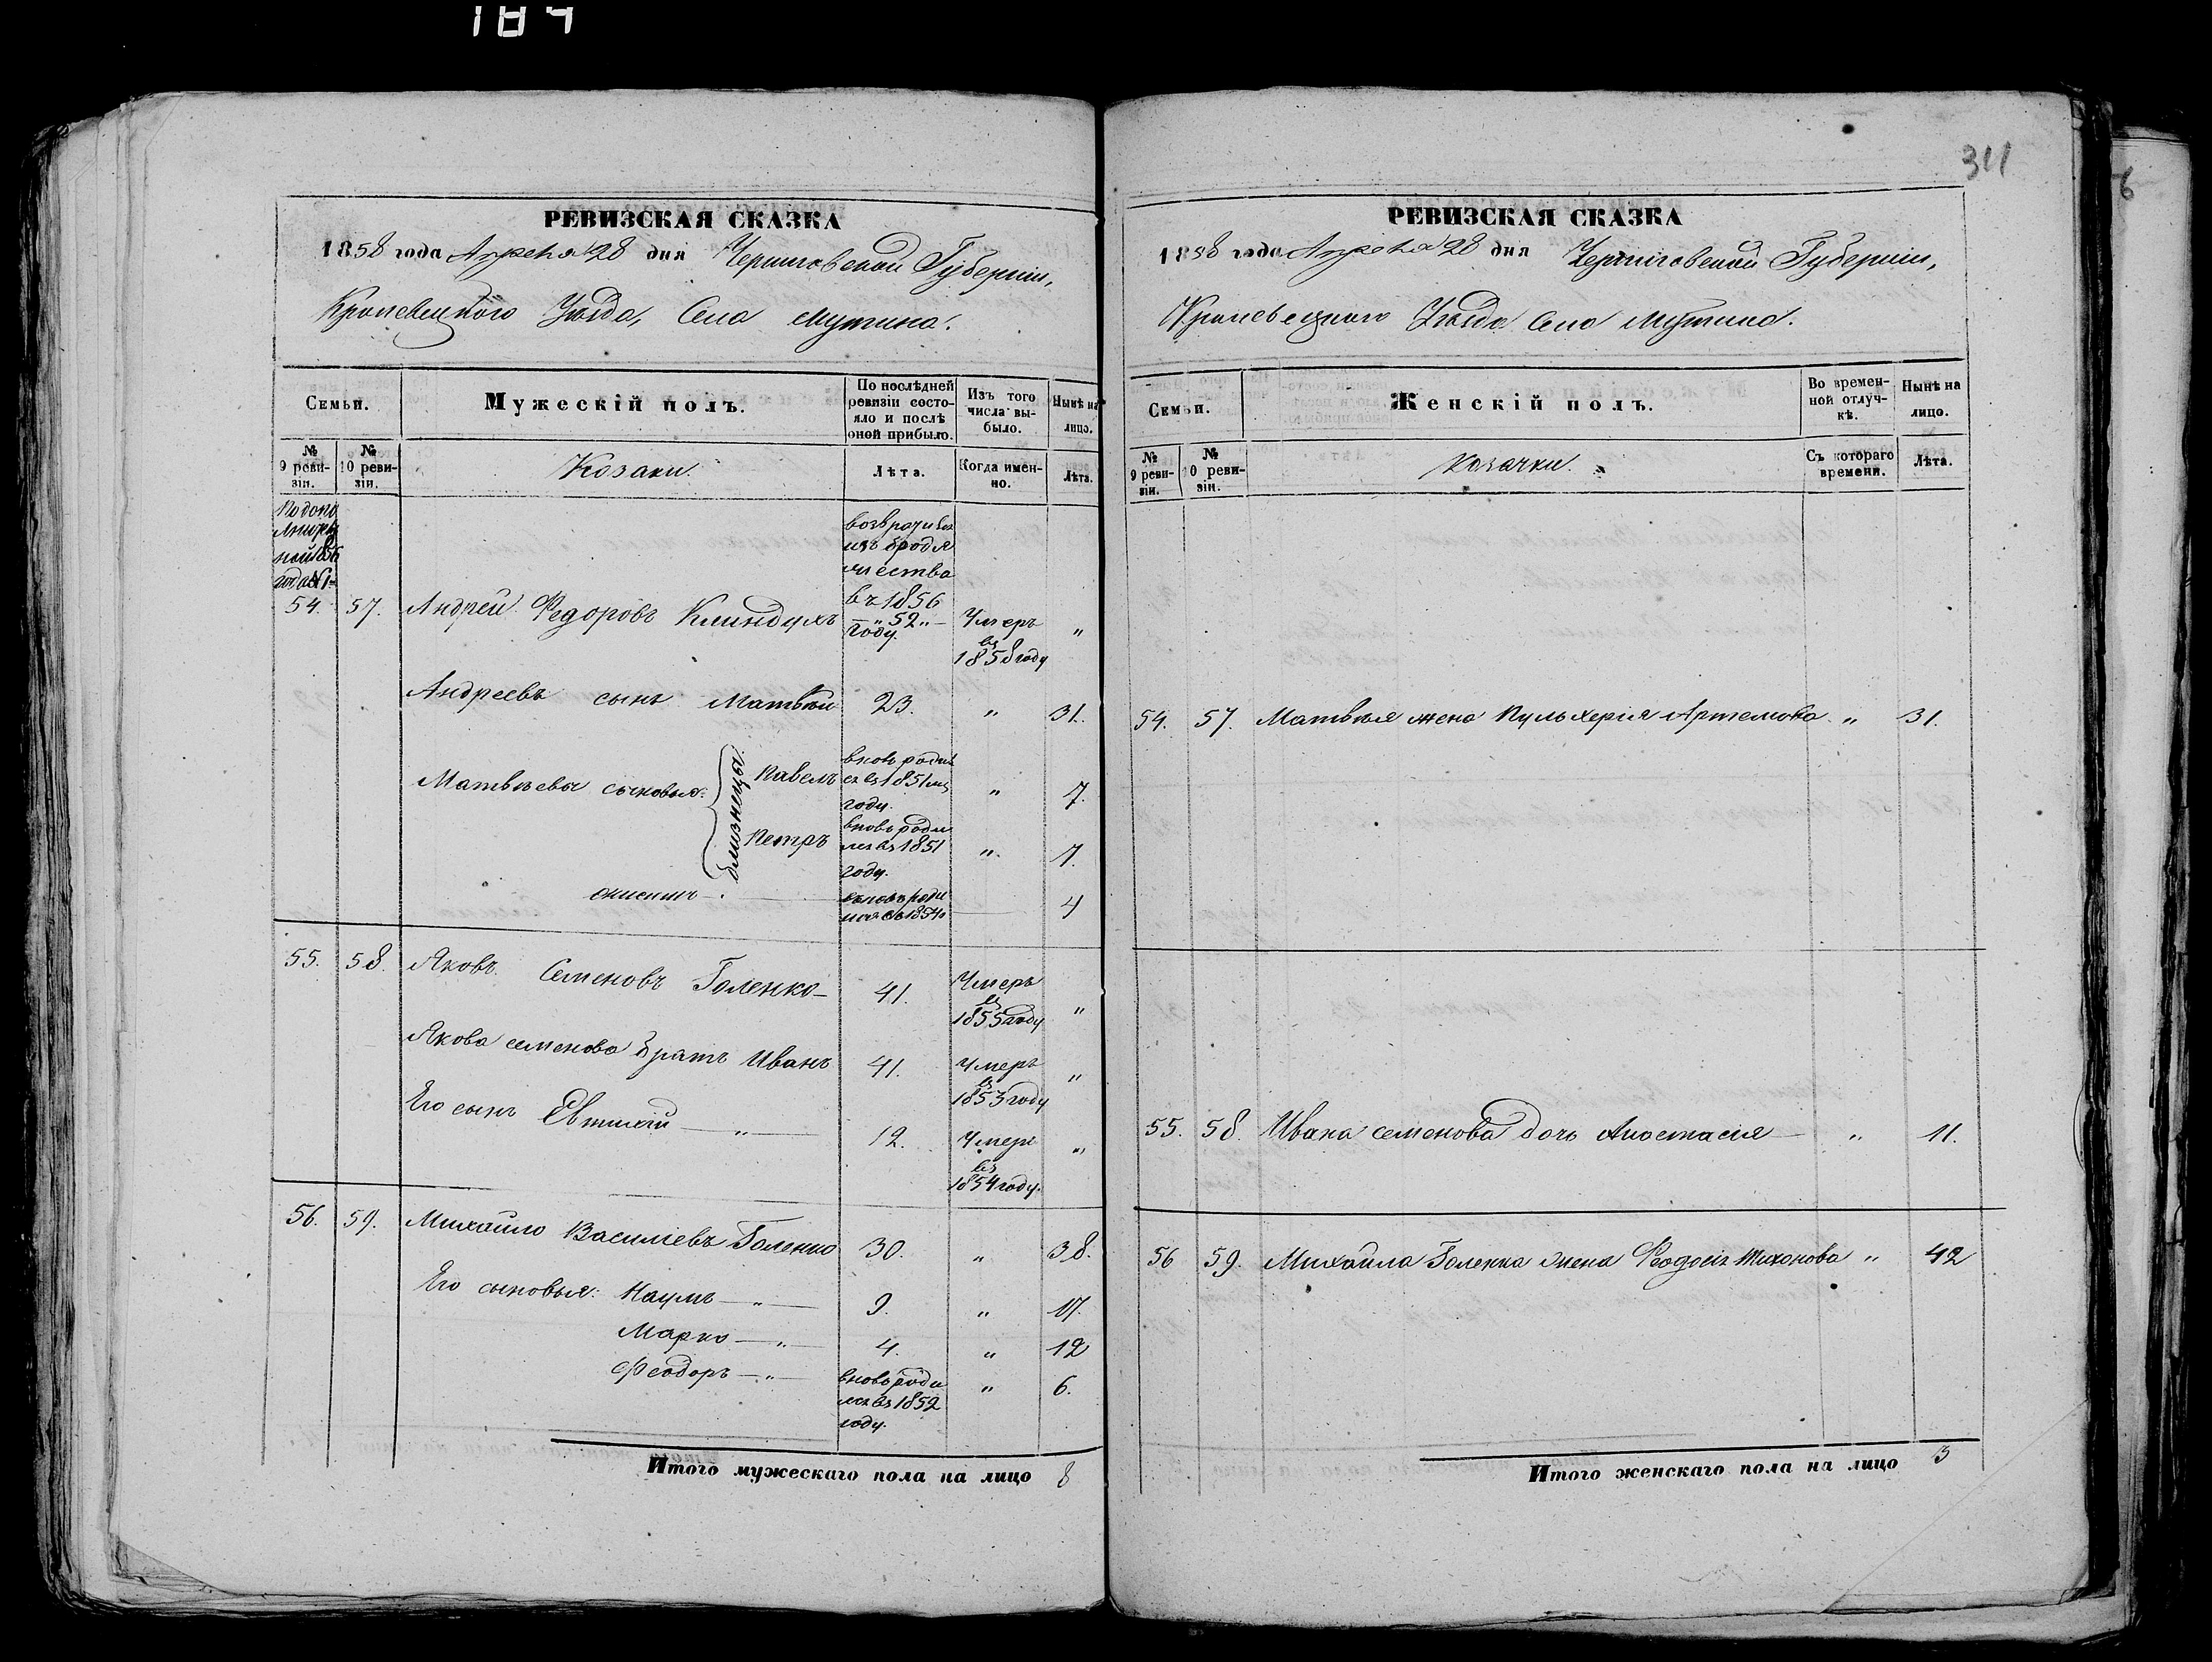 184
РЕВИЗСКАЯ СКАЗКА
1858 года Апреля 28 дня Черниговской Губернии,
Кролевецкого Уѣзда, Села Мутина.
Семьи.
Мужескій полъ.
По послѣдней ревизіи состояло и послѣ оной прибыло.
Изъ того числа выбыло.
Нынѣ на лицо.
№ 9 ревизіи.
№ 10 ревизіи.
Козаки.
Лѣта.
Когда именно.
Лѣта.
По допо
лнитель
ной 1856
года № 1
возвратився
изъ бродя
жества
въ 1856
году
54. 57. Андрей Федоровъ Клиндухъ „52„ Умеръ въ 1858 году „
Андреевъ сынъ Матвѣй 23. „ 31.
Матвѣевы сыновья: близнецы Павелъ вновь родился въ 1851мъ году. „ 7.
Петръ вновь родился въ 1851 году. „ 7.
Онисимъ вновь родился въ 1854 4
55. 58. Яковъ Семеновъ Голенко 41. Умеръ въ 1855 году „
Якова Семенова братъ Иванъ 41. Умеръ въ 1853 году „
Его сынъ Евтихій — „ — 12. Умеръ въ 1854 году. „
56. 59. Михайло Василіевъ Голенко 30. „ 38.
Его сыновья: Наумъ — „ — 9. „ 17.
Марко — „ — 4. „ 12
Феодоръ — „ — вновь родился въ 1852 году. „ 6.
Итого мужескаго пола на лицо 8
311
РЕВИЗСКАЯ СКАЗКА
1858 года Апреля 28 дня Черниговской Губернии,
Кролевецкого Уѣзда Села Мутина.
Семьи.
Женскій полъ.
Во временной отлучкѣ.
Нынѣ на лицо.
№ 9 ревизіи.
№ 10 ревизіи.
Козачки.
Съ котораго времени.
Лѣта.
54. 57. Матвѣя жена Пульхерія Артемова „ 31.
55. 58. Ивана Семенова дочь Анастасия „ 11.
56 59. Михайла Голенка жена Феодосія Тихонова „ 42
Итого женскаго пола на лицо 3